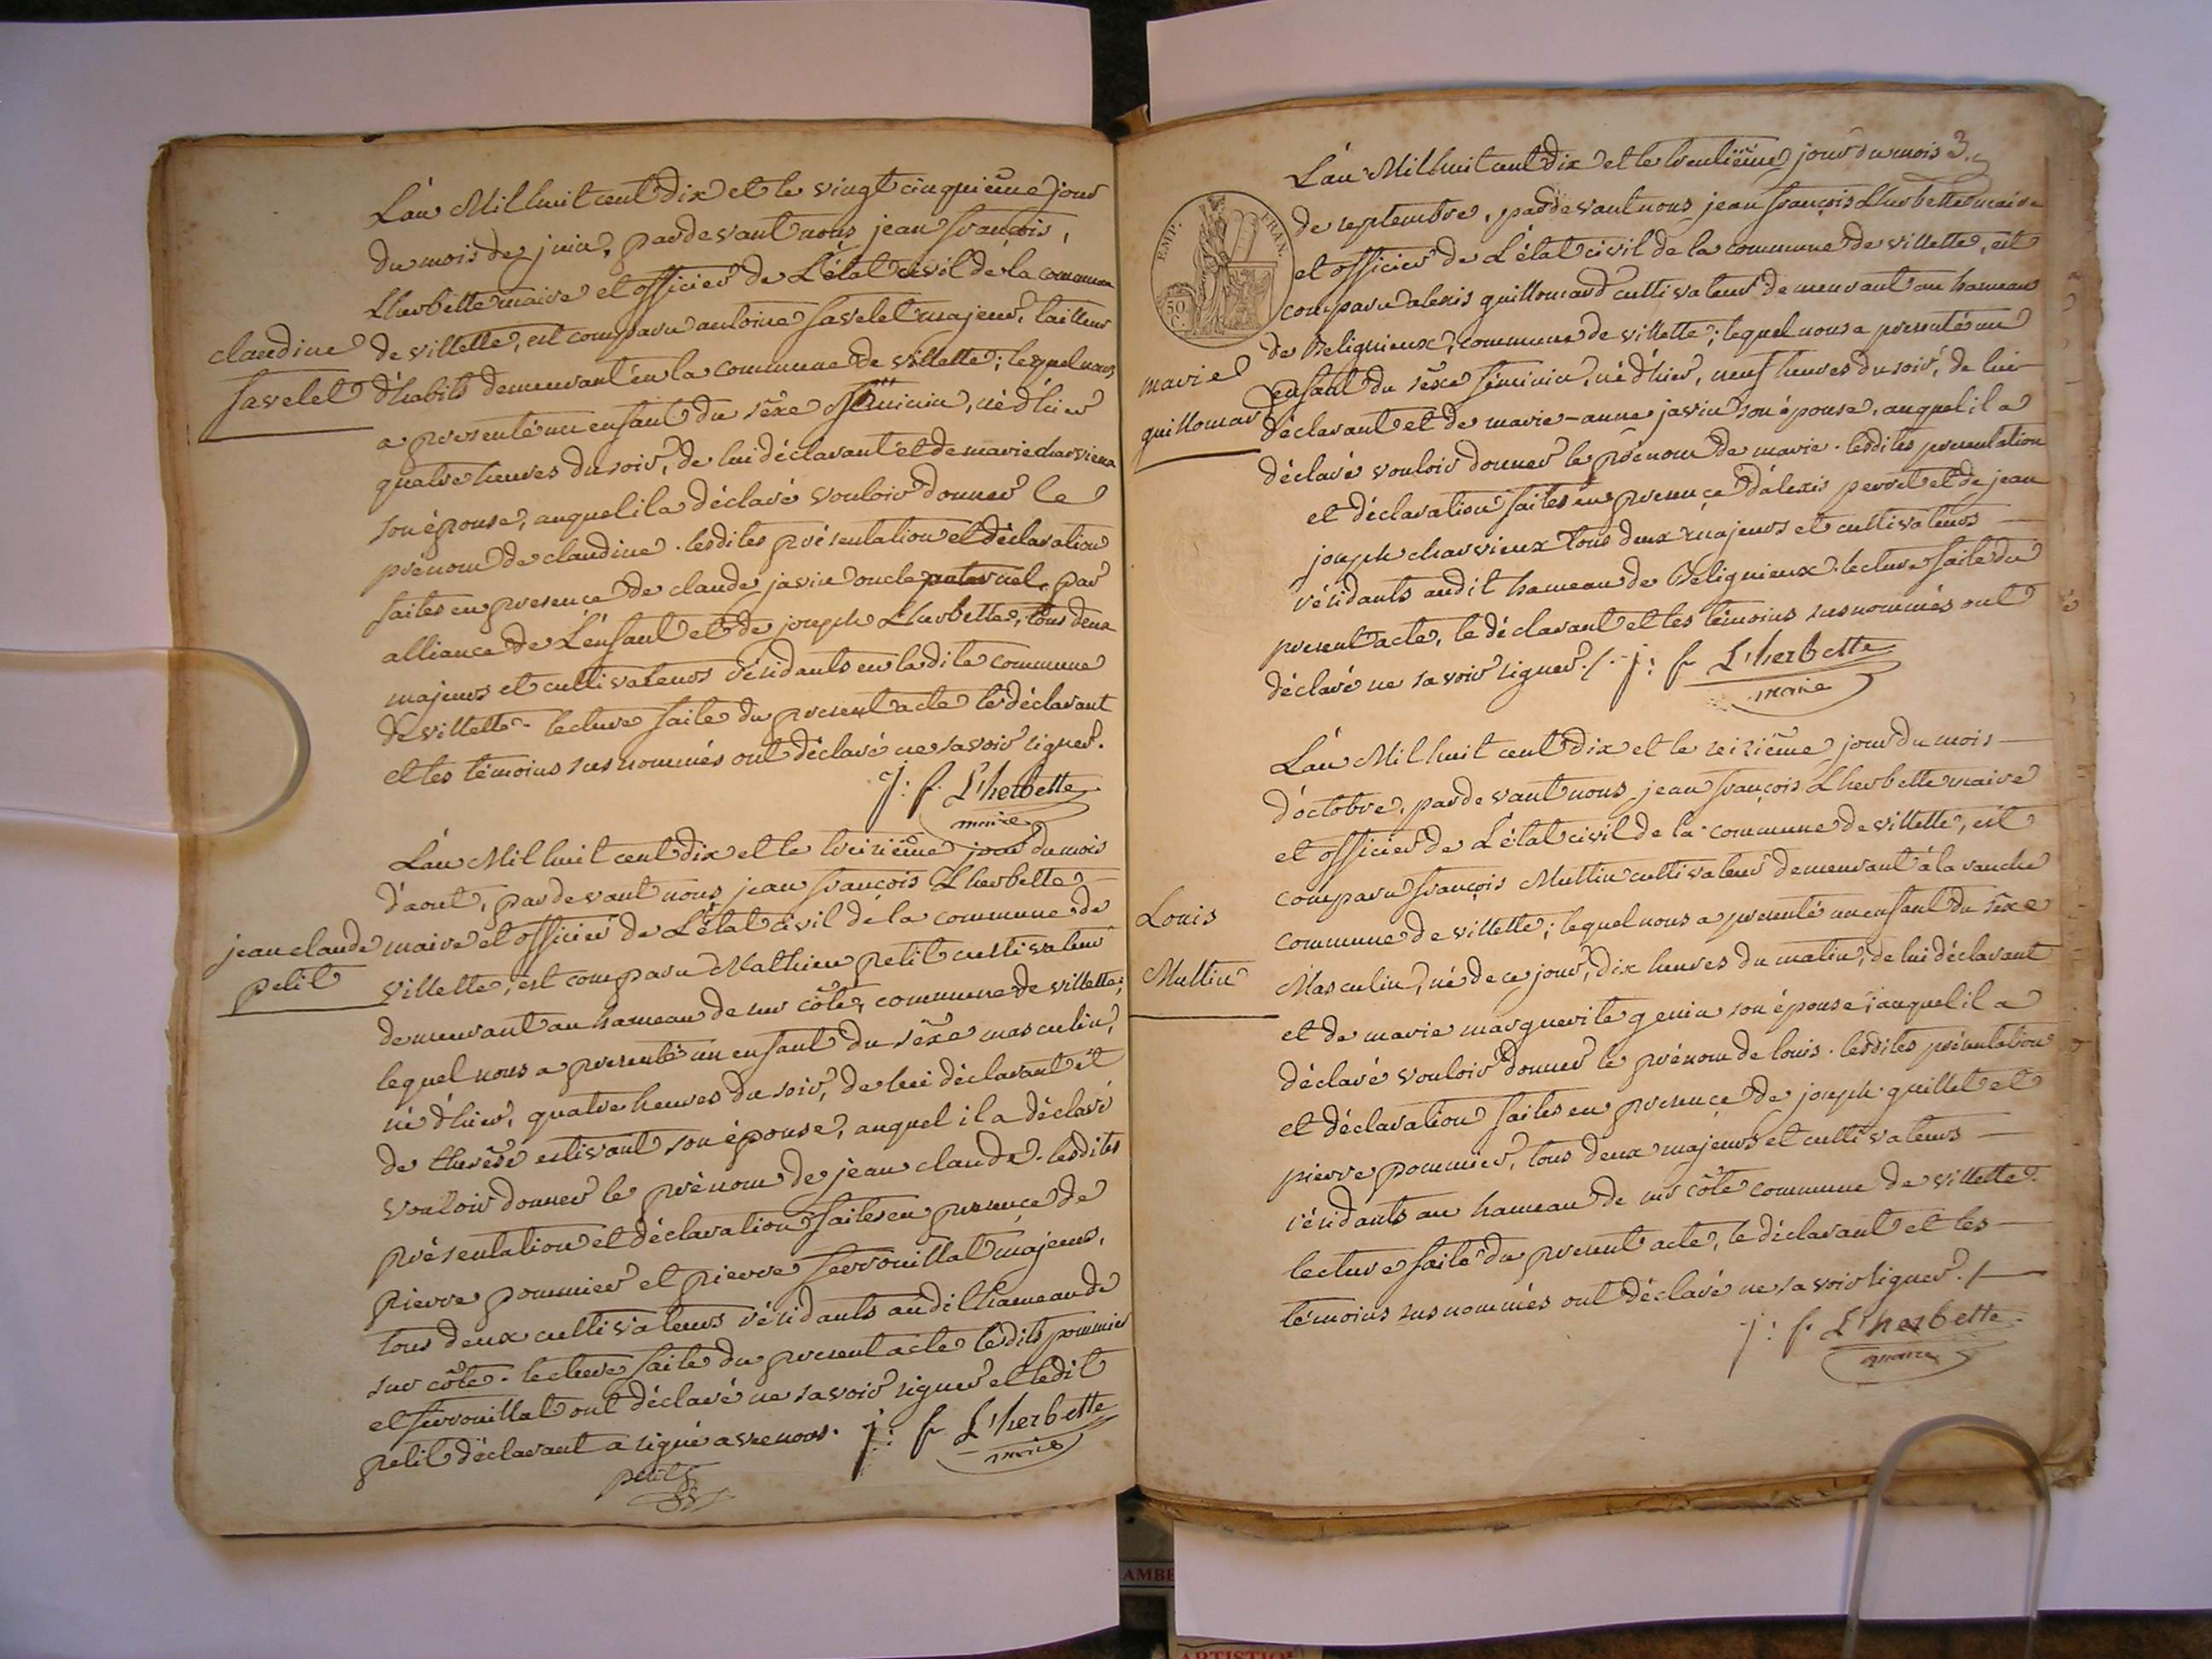 L'an Mil huit cent dix et le vingt cinquième jour
du mois de juin, pardevant nous jean françois,
Lherbette maire et officier de L'état civil de la commune
claudine
favelet
de villette, est comparu antoine favelet majeur, tailleur
d'habits demeurant en la commune de villette; lequel nous
a presenté un enfant du sèxe féminin, né d'hier
quatre heures du soir, de lui déclarant et de marie charvieux
son épouse, auquel il a déclaré vouloir donner le
prénom de claudine. lesdites présentation et déclaration
faites en presence de claude javin oncle paternel, par
alliance de L'enfant et de joseph Lherbette, tous deux
majeurs et cultivateurs résidants en ladite commune
de villette. lecture faite du present acte le déclarant
et les témoins susnommés ont déclaré ne savoir signer.
j: f. L'herbette
maire
L'an Mil huit cent dix et le treizième jour du mois
d'aout, pardevant nous jean françois Lherbette
jean claude
petit
maire et officier de L'état civil de la commune de
villette, est comparu Mathieu petit cultivateur
demeurant au hameau de sur côte, commune de villette;
lequel nous a presenté un enfant du sèxe masculin,
né d'hier, quatre heures du soir, de lui déclarant et
de therèse estivant son épouse, auquel il a déclaré
vouloir donner le prénom de jean claude. lesdites
présentation et déclaration faites en presence de
pierre pommier et pierre ferrouillat majeurs,
tous deux cultivateurs résidants audit hameau de
sur côte. lecture faite du present acte lesdits pommier
et ferrouillat ont déclaré ne savoir signer et ledit
petit déclarant a signé avec nous. j: f. L'herbette
maire
petit
3.
L'an Mil huit cent dix et le trentième jour du mois
EMP. FRAN.
50 C.
de septembre, pardevant nous jean françois Lherbette maire
et officier de L'état civil de la commune de villette, est
comparu alexis guillomard cultivateur demeurant au hameau
de Beligneux, commune de villette; lequel nous a presenté un
marie
guillomard
enfant du sèxe féminin, né d'hier, neuf heures du soir, de lui
déclarant et de marie-anne javin son épouse, auquel il a
déclaré vouloir donner le prénom de marie. lesdites presentation
et déclaration faites en presence d'alexis perret et de jean
joseph charvieux tous deux majeurs et cultivateurs
résidants audit hameau de Beligneux. lecture faite du
present acte, le déclarant et les témoins susnommés ont
déclaré ne savoir signer./. j: f. L'herbette
maire
L'an Mil huit cent dix et le seizième jour du mois
d'octobre, pardevant nous jean françois Lherbette maire
et officier de L'état civil de la commune de villette, est
comparu françois Muttin cultivateur demeurant à la ranche
Louis
Muttin
commune de villette; lequel nous a presenté un enfant du sèxe
Masculin, né de ce jour, dix heures du matin, de lui déclarant
et de marie marguerite genin son épouse; auquel il a
déclaré vouloir donner le prénom de louis. lesdites présentation
et déclaration faites en presence de joseph guillet et
pierre pommier, tous deux majeurs et cultivateurs
résidants au hameau de sur côte commune de villette.
lecture faite du present acte, le déclarant et les
témoins susnommés ont déclaré ne savoir signer./
j: f. L'herbette
maire
AMBE
ARTISTIQ